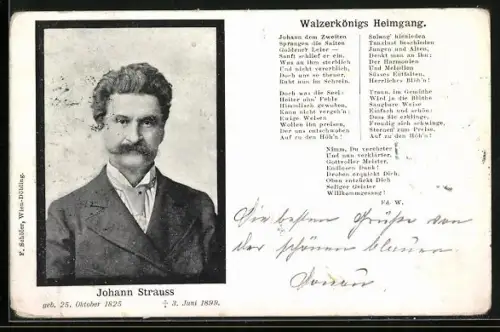 Walzerkönigs Heimgang.
Johann dem Zweiten
Sprangen die Saiten
Goldener Leier —
Sanft schlief er ein.
Was an ihm sterblich
Und nicht vererblich,
Doch uns so theuer,
Ruht nun im Schrein.
Doch was die Seele
Heiter ohn' Fehle
Himmlisch gewoben,
Kann nicht vergeh'n:
Ewige Weisen
Wollen ihn preisen,
Der uns entschwoben
Auf zu den Höh'n!
Solang' hienieden
Tanzlust beschieden
Jungen und Alten,
Denkt man an Ihn:
Der Harmonien
Und Melodien
Süsses Entfalten,
Herrliches Blüh'n!
Traun, im Gemüthe
Wird ja die Blüthe
Sangbarer Weise
Einfach und schön:
Dass die erklinge,
Freudig sich schwinge,
Sternen zum Preise,
Auf zu den Höh'n!
Nimm, Du verehrter
Und nun verklärter,
Gottvoller Meister,
Endlosen Dank!
Droben erquickt Dich,
Oben entzückt Dich
Seliger Geister
Willkommgesang!
Ed. W.
F. Schöler, Wien-Döbling.
Johann Strauss
geb. 25. Oktober 1825 † 3. Juni 1899.
Die besten Grüße von
der schönen blauen
Donau